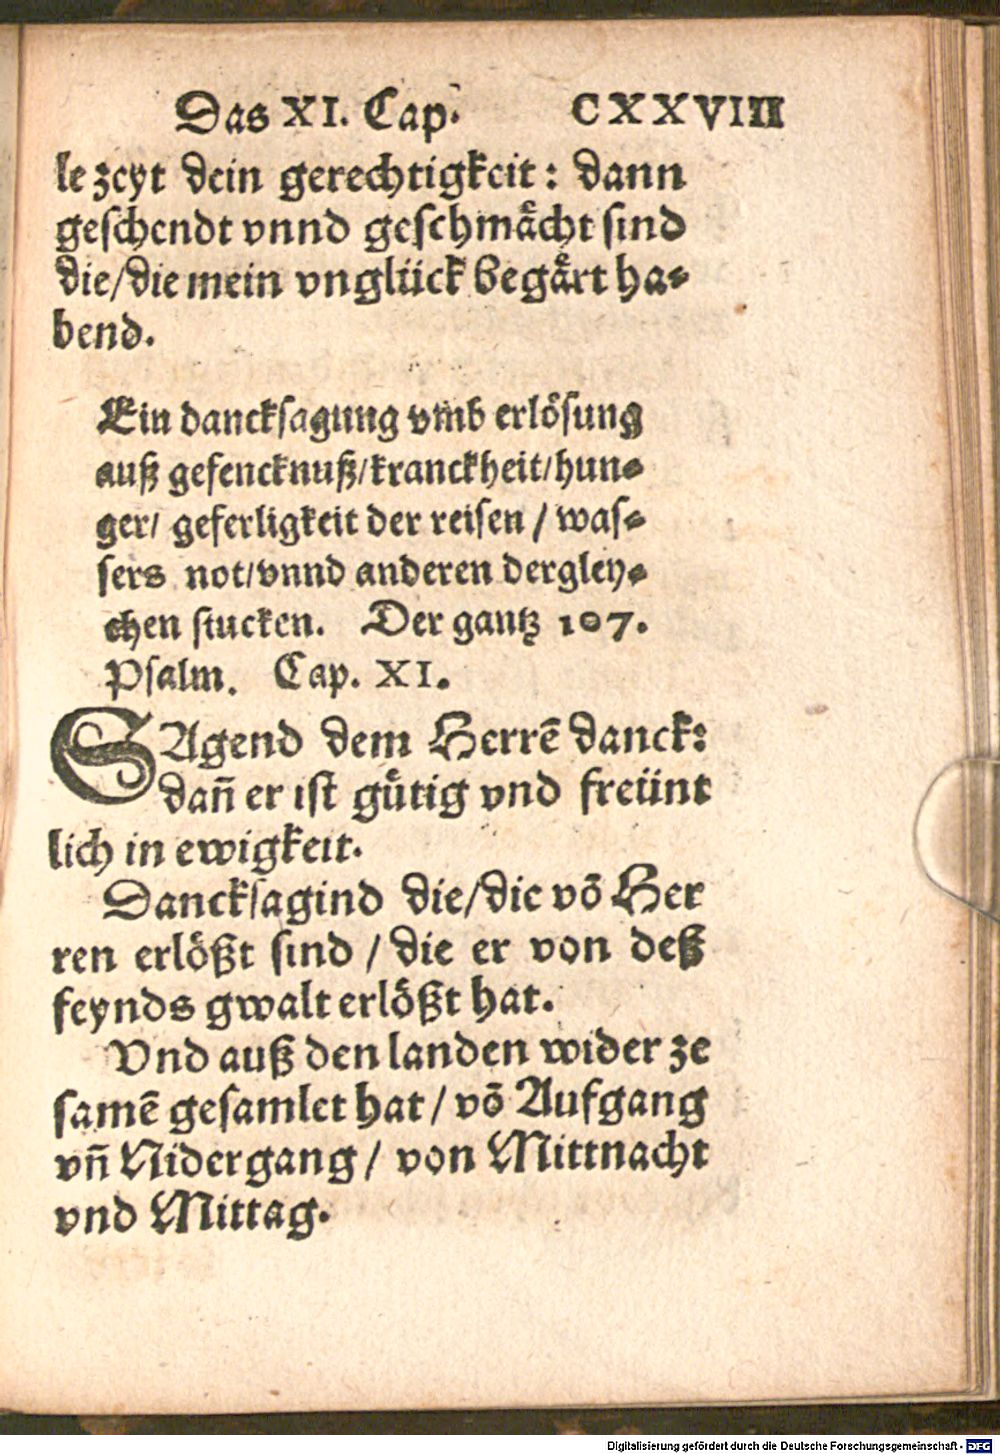 Das XI. Cap. CXXVIII
le zeyt dein gerechtigkeit: dann
geschendt vnnd geschmaͤcht sind
die/die mein vnglück begaͤrt ha⸗
bend.
Ein dancksagung vmb erlösung
auß gefencknuß/kranckheit/hun⸗
ger/ geferligkeit der reisen / was⸗
sers not/vnnd anderen dergley⸗
chen stucken. Der gantz 107.
Psalm. Cap. XI.
SAgend dem Herrē danck:
dañ er ist guͤtig vnd freünt
lich in ewigkeit.
Dancksagind die/die võ Her
ren erlößt sind / die er von deß
feynds gwalt erlößt hat.
Vnd auß den landen wider ze
samē gesamlet hat / võ Aufgang
vñ Nidergang / von Mittnacht
vnd Mittag.
Digitalisierung gefördert durch die Deutsche Forschungsgemeinschaft - DFG